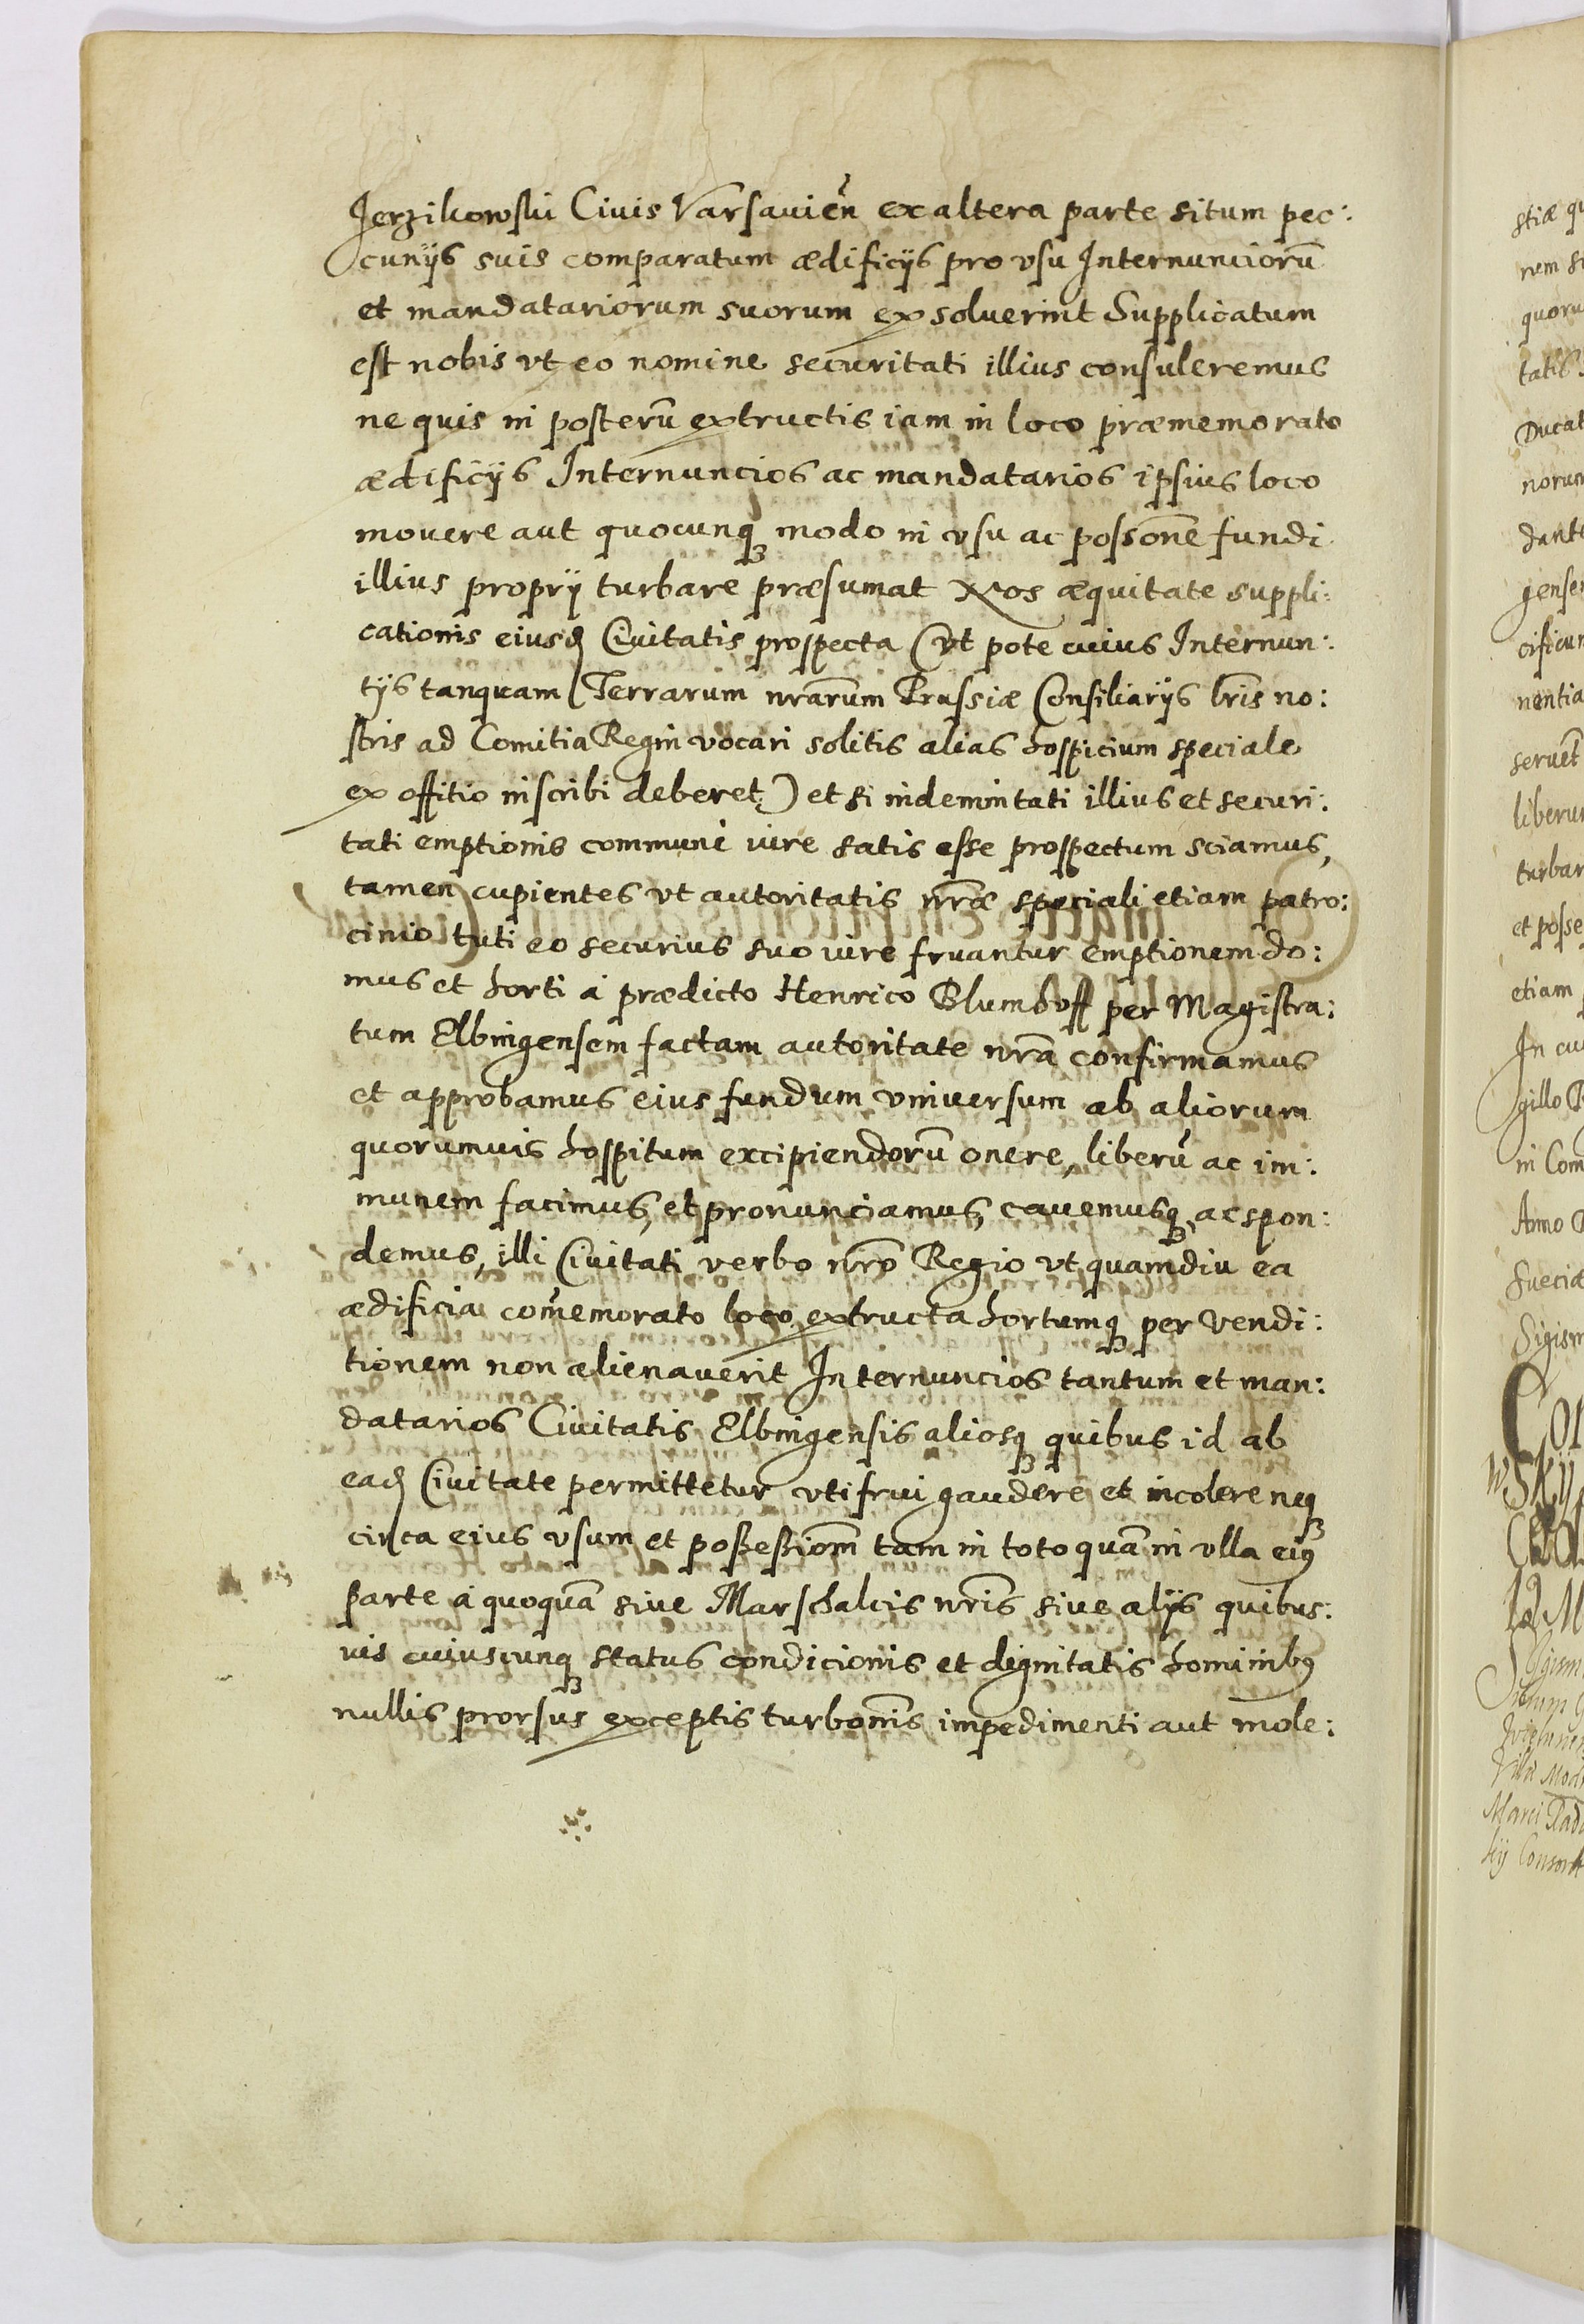 Jerzikowski Civis Varsavień ex altera parte situm pec:
cunijs suis comparatum ædificijs pro vsu Internunciorū
et mandatariorum suorum exsoluerint Supplicatum
est nobis vt eo nomine securitati illius consuleremus
ne quis in posterū extructis iam in loco præmemorato
ædificijs Internuncios ac mandatarios ipsius loco
mouere aut quocunq3 modo in vsu ac possōne fundi
illius proprij turbare præsumat Nos æquitate suppli:
cationis eiusd Ciuitatis prospecta (vt pote cuius Internun:
tijs tanquam Terrarum nrārum Prussiæ Consiliarijs lr̄is no:
stris ad Comitia Regni vocari solitis alias hospicium speciale
ex offitio inscribi deberet) et si indemnitati illius et securi:
tati emptionis communi iure satis esse prospectum sciamus,
tamen cupientes vt autoritatis nrǣ speciali etiam patro:
cinio tuti eo securius suo iure fruantur emptionem do:
mus et horti à prædicto Henrico Blumhoff per Magistra:
tum Elbingensem factam autoritate nrā confirmamus
et approbamus eius fundum vniuersum ab aliorum
quorumuis hospitum excipiendorū onere, liberū ac im:
munem facimus, et pronunciamus, cauemusq3 ac spon:
demus, illi Ciuitati verbo nrō Regio vt quamdiu ea
ædificia com̄emorato loco extructa hortumq3 per vendi:
tionem non alienauerit Internuncios tantum et man:
datarios Ciuitatis Elbingensis aliosq3 quibus id ab
ead Ciuitate permittetur vti frui gaudere et incolere neq3
circa eius vsum et poßeßiom̄ tam in toto quā in vlla ei9
parte à quoquā siue Marschalcis nrīs siue alijs quibus:
uis cuiuscunq3 status condicionis et dignitatis hominib9
nullis prorsus exceptis turbonīs impedimenti aut mole: